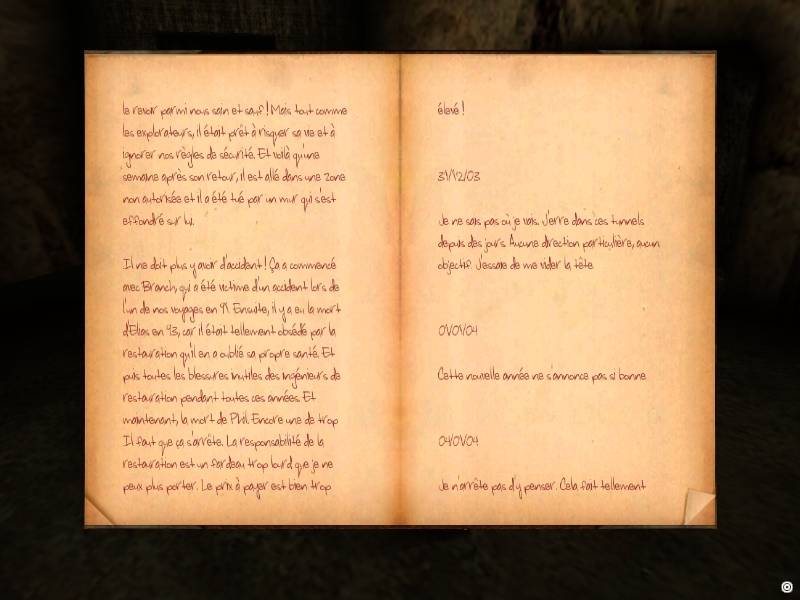 le revoir parmi nous sain et sauf ! Mais tout comme
les explorateurs, il était prêt à risquer sa vie et à
ignorer nos règles de sécurité. Et voilà qu'une
semaine après son retour, il est allé dans une zone
non autorisée et il a été tué par un mur qui s'est
effondré sur lui.
Il ne doit plus y avoir d'accident ! Ça a commencé
avec Branch, qui a été victime d'un accident lors de
l'un de nos voyages en 91. Ensuite, il y a eu la mort
d'Elias en 93, car il était tellement obsédé par la
restauration qu'il en a oublié sa propre santé. Et
puis toutes les blessures inutiles des ingénieurs de
restauration pendant toutes ces années. Et
maintenant, la mort de Phil. Encore une de trop
Il faut que ça s'arrête. La responsabilité de la
restauration est un fardeau trop lourd que je ne
peux plus porter. Le prix à payer est bien trop
élevé !
31/12/03
Je ne sais pas où je vais. J'erre dans ces tunnels
depuis des jours. Aucune direction particulière, aucun
objectif. J'essaie de me vider la tête
01/01/04
Cette nouvelle année ne s'annonce pas si bonne
04/01/04
Je n'arrête pas d'y penser. Cela fait tellement